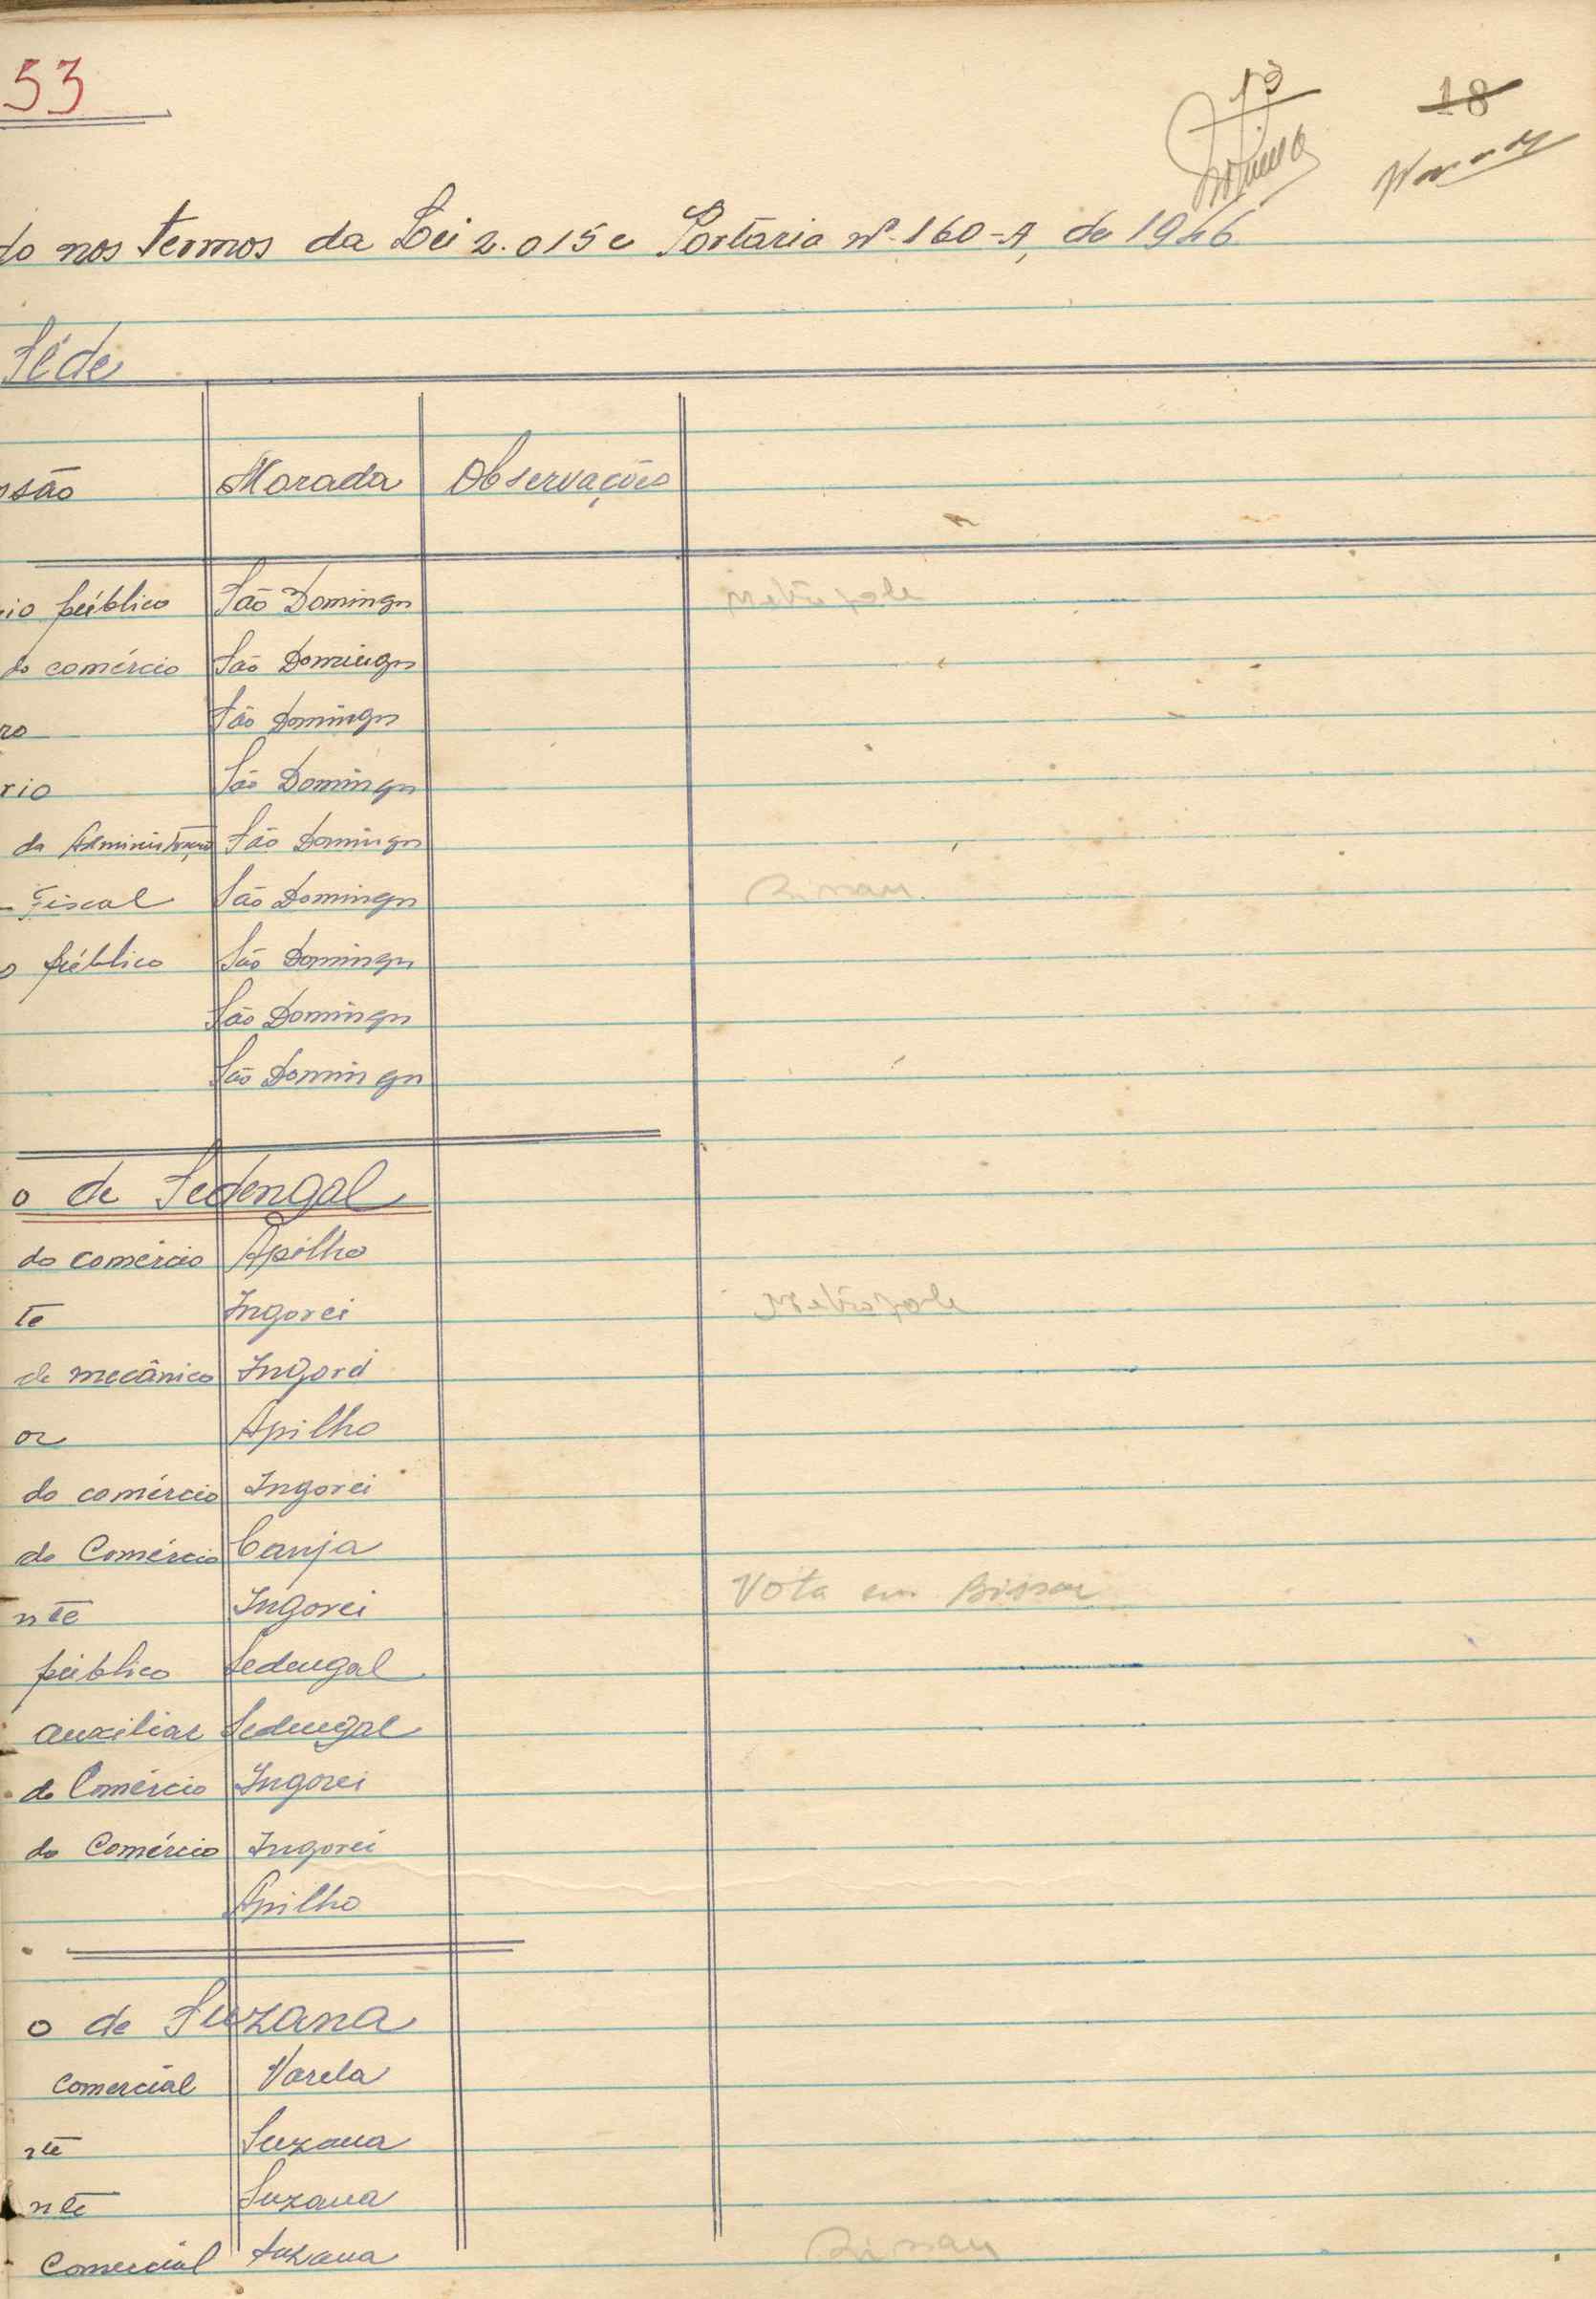 53
13
18
do nos termos da Lei 2.015 e Portária nº 160-A, de 1946
Séde
são Morada Observações
io público São Domingos Metrópole
do comércio São Domingos
ro São Domingos
rio São Domingos
da Administração São Domingos
Fiscal São Domingos Bissau
o público São Domingos
São Domingos
São Domingos
o de Sedengal
do comércio Apilho
te Ingorei Metrópole
de mecânico Ingorei
or Apilho
do comércio Ingorei
do Comércio Canja
nte Ingorei Vota em Bissau
público Sedengal
auxiliar Sedengal
do Comércio Ingorei
do Comércio Ingorei
Apilho
o de Suzana
Comercial Varela
nte Suzana
nte Suzana
Comercial Suzana Bissau